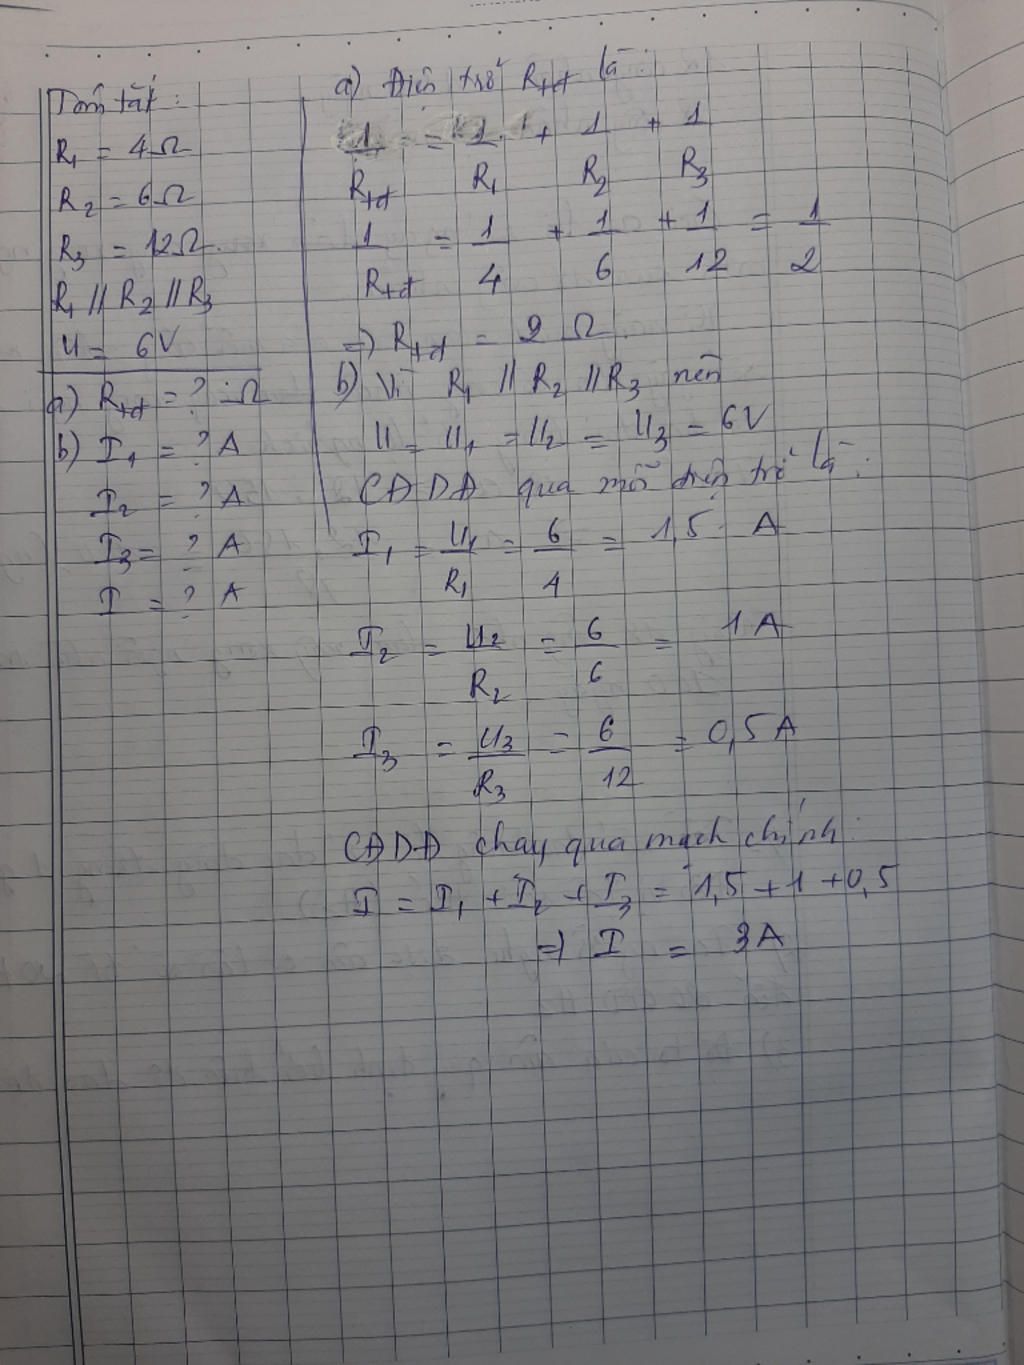 Tóm tắt:
R₁ = 4Ω
R₂ = 6Ω
R₃ = 12Ω
R₁ // R₂ // R₃
U = 6V
a) Rtđ = ? Ω
b) I₁ = ? A
I₂ = ? A
I₃ = ? A
I = ? A
a) Điện trở Rtđ là:
1/Rtđ = 1/R₁ + 1/R₂ + 1/R₃
1/Rtđ = 1/4 + 1/6 + 1/12 = 1/2
=> Rtđ = 2 Ω
b) Vì R₁ // R₂ // R₃ nên
U = U₁ = U₂ = U₃ = 6V
CĐDĐ qua mỗi điện trở là:
I₁ = U₁/R₁ = 6/4 = 1,5 A
I₂ = U₂/R₂ = 6/6 = 1A
I₃ = U₃/R₃ = 6/12 = 0,5A
CĐDĐ chạy qua mạch chính:
I = I₁ + I₂ + I₃ = 1,5 + 1 + 0,5
=> I = 3A